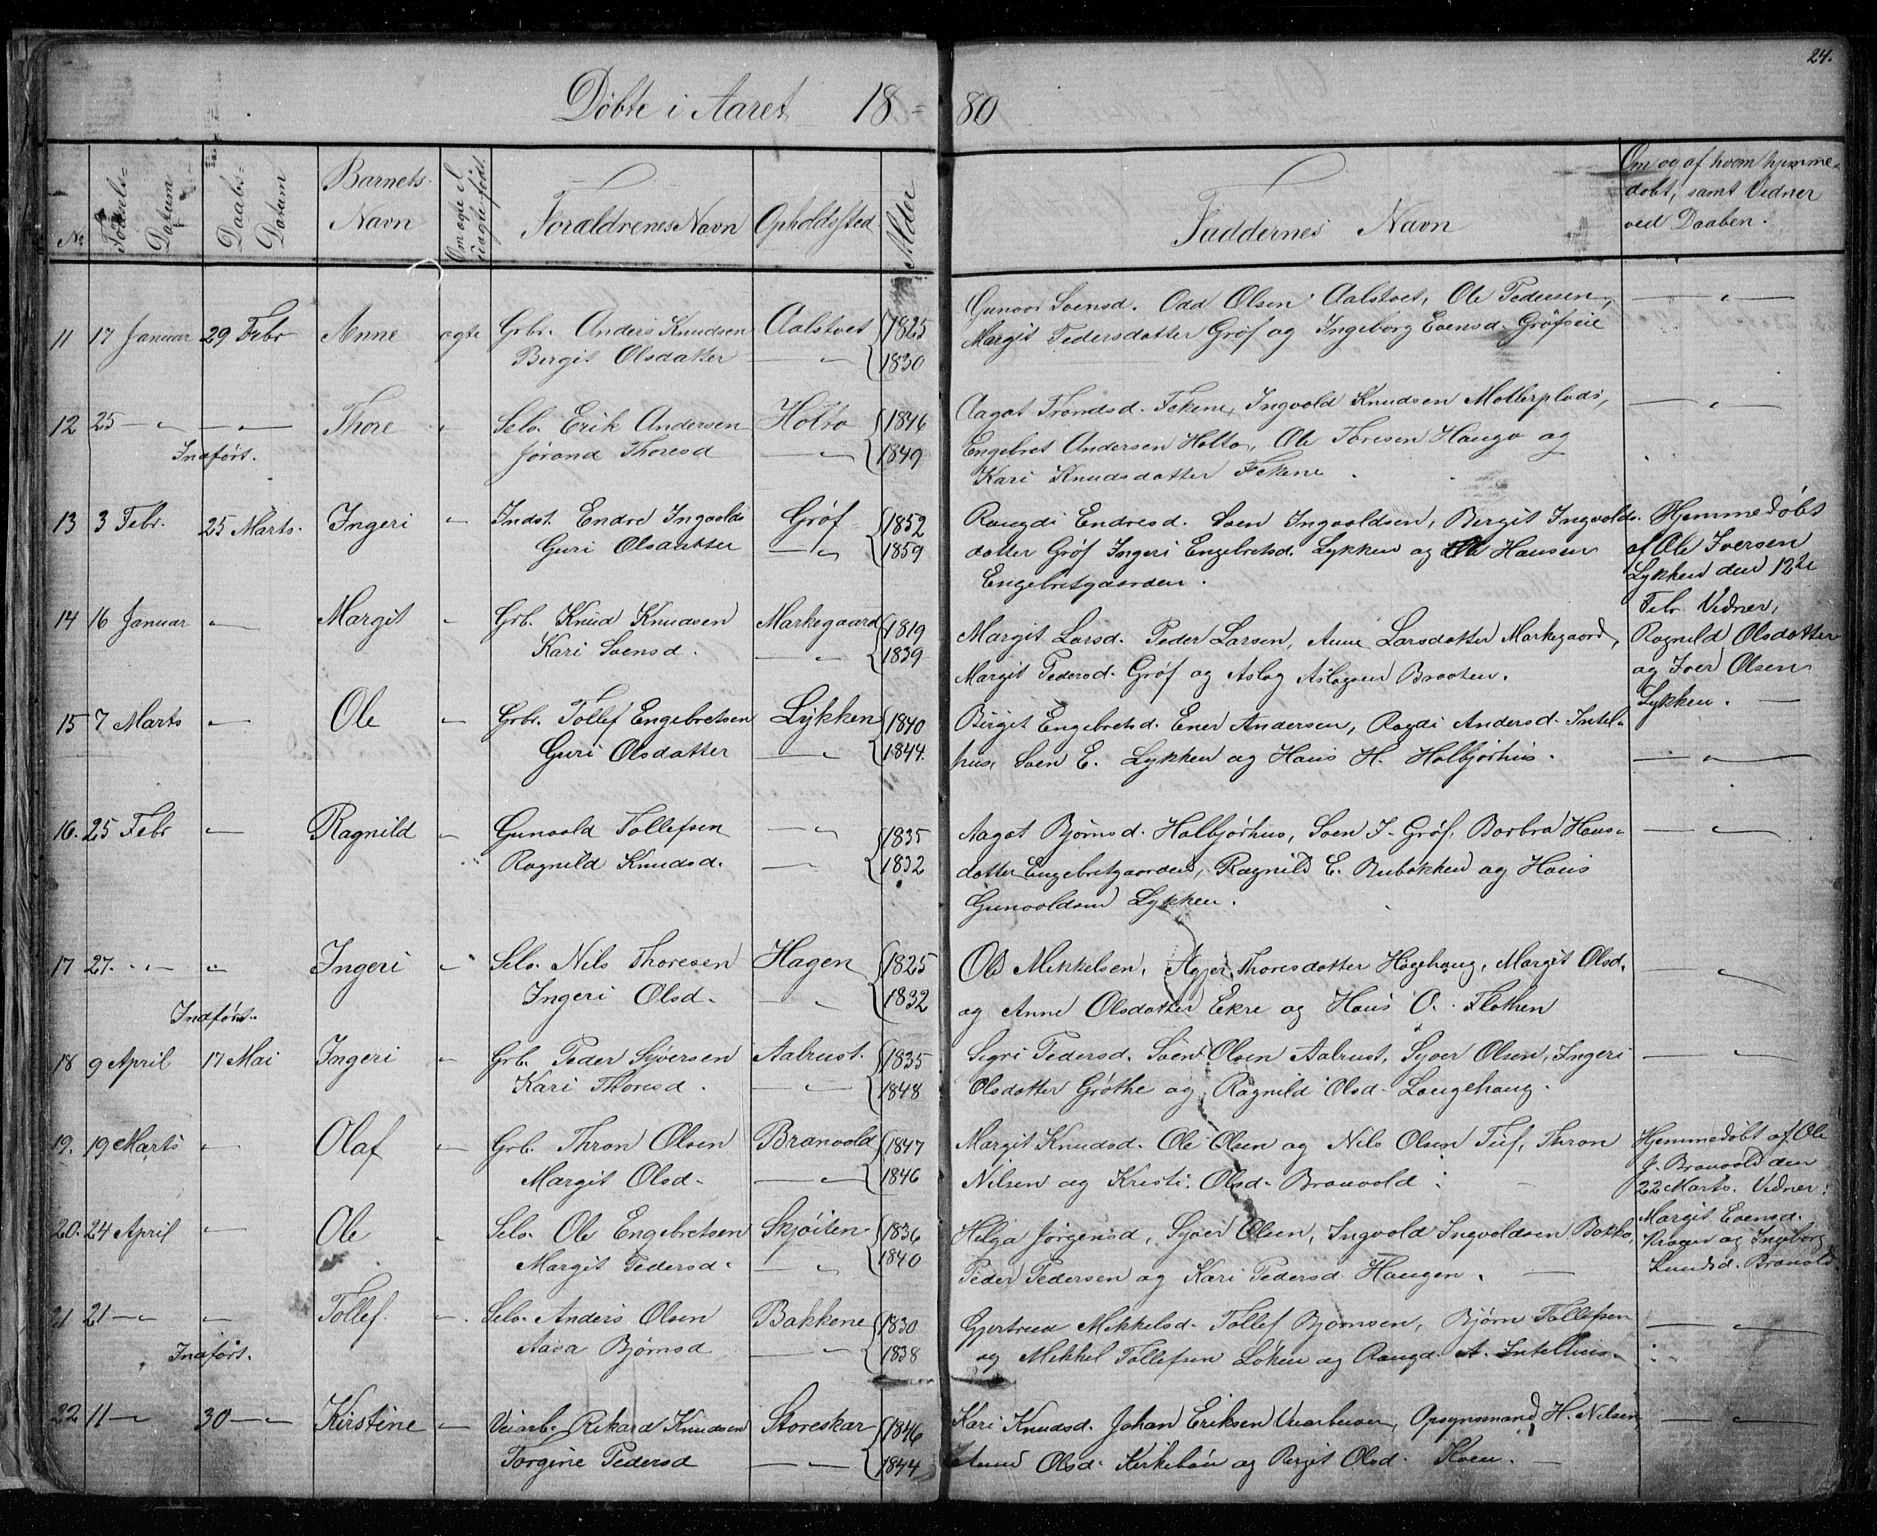 24.
Döbte i Aaret 18 = 80
No
Födsels= Datum
Daabs= Datum
Barnets Navn
Om ægte el. uægte født.
Forældrenes Navn
Opholdssted
Alder
Faddernes Navn
Om og af hvem hjemme=
døbt, samt Vidner
ved Daaben.
11 17 Januar 29 Febr Anne ægte Grbr. Anders Knudsen Aalstvet 1825
Bergit Olsdatter — " — 1830
Gunvor Svensd. Odd Olsen Aalstvet, Ole Pedersen,
Margit Pedersdatter Gröf og Ingeborg Evensd. Gröfseie
— " —
12 25 — " — " — Thore " Selv. Erik Andersen Holto 1846
Indført. Jørand Thoresd — " — 1849
Aagot Trondsd. Fekene, Ingvold Knudsen Mollerplads,
Engebret Andersen Holto, Ole Toresen Haugo og
Kari Knudsdatter Fekene.
— " —
13 3 Febr. 25 Marts. Ingeri " Indst. Endre Ingvolds Gröf 1852
Guri Olsdatter — " — 1859
Raugdi Endresd. Sven Ingvoldsen, Bergit Ingvolds=
datter Gröf Ingeri Engebretsd. Lykken og Ole Hansen
Engebretgaarden.
Hjemmedøbt
af Ole Iversen
Lykken den 12te
Febr. Vidner,
Ragnild Olsdatter
og Iver Olsen
Lykken. —
14 16 Januar " Margit " Grb. Knud Knudsen Markegaard 1819
Kari Svensd. — " — 1839
Margit Larsd. Peder Larsen, Anne Larsdatter Markegaard,
Margit Pedersd. Gröf og Aslag Aslagsen Braaten.
15 7 Marts " Ole " Grbr. Tollef Engebretsen Lykken 1840
Guri Olsdatter — " — 1844.
Birget Engebretsd. Ener Andersen, Ragdi Andersd. Intel=
hus, Sven E. Lykken og Hans H. Halbjörhus.
— " —
16. 25 Febr " Ragnild " Gunvold Tollefsen — " — 1835
Ragnild Knudsd. — " — 1832
Aagot Bjørnsd. Halbjörhus, Sven I. Gröf, Barbra Hans=
datter Engebretgaarden, Ragnild E. Rubökken og Hans
Gunvoldsen Lykken.
— " —
17 27. — " " Ingeri " Selv. Nils Thoresen Hagen 1825
Ingeri Olsd. — " — 1832
Indført.
Ole Mikkelsen, Thoresdatter Högehaug, Margit Olsd.
og Anne Olsdatter Ekre og Hans O. Flathen
— " —
18 9 April 17 Mai Ingeri " Grb. Peder Syversen Aalrust. 1835
Kari Thoresd. — " — 1848
Sigri Pedersd. Sven Olsen Aalrust, Syver Olsen, Ingeri
Olsdatter Gröthe og Ragnild Olsd. Langehaug.
— " —
19. 19 Marts " Olaf " Grb. Thron Olsen Branvold 1847
Margit Olsd. — " — 1846
Margit Knudsd. Ole Olsen og Nils Olsen Tuf, Thron
Nilsen og Kristi Olsd. Branvold.
Hjemmedøbt af Ole
J. Branvold den
22 Marts. Vidner:
Margit Evensd.
og Ingeborg
Knudsd. Branvold.
20. 24 April " Ole " Selv. Ole Engebretsen Skjöiten 1836
Margit Pedersd. — " — 1840
Helga Jørgensd, Syver Olsen, Ingvold Ingvoldsen Bakko,
Peder Pedersen og Kari Pedersd. Haugen.
21 21 — " " Tollef. " Selv. Anders Olsen Bakkene 1830
Indført. Aasa Bjørnsd — " — 1838
Gjertrud Mikkelsd. Tollef Bjørnsen, Bjørn Tollefsen
og Mikkel Tollefsen Löken og Raugd. A. Intelhus.
— " —
22 11 — " 30 — " — Kirstine " Veiarb. Rikard Knudsen Storeskar 1846
Torgine Pedersd — " — 1844
Kari Knudsd. Johan Eriksen Veiarbeider, Opsynsmand H. Nilsen,
Olsd. Kirkebön og Bergit Olsd.
— " —